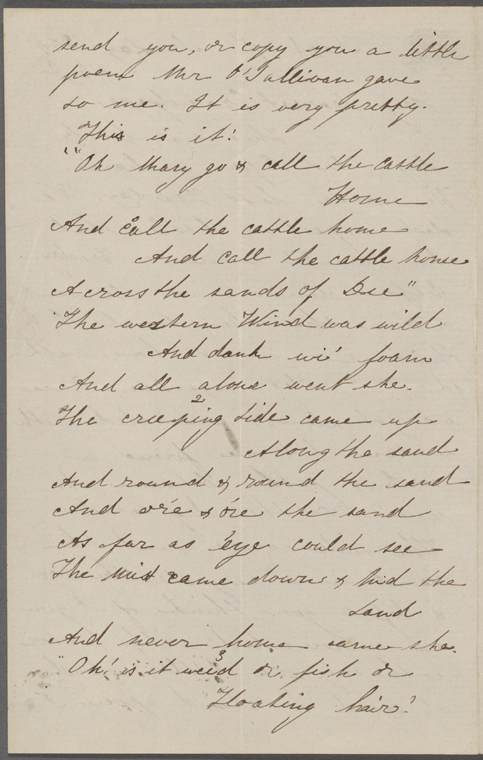 send you, or copy you a little
poem Mr O'Sullivan gave
to me. It is very pretty.
This is it!
"Oh Mary go & call the cattle
Home
And call the cattle home
And call the cattle home
Across the sands of Dee"
The western Wind was wild
And dank wi' foam
And all alone went she.
2
The creeping tide came up
Along the sand
And round & round the sand
And o're & o're the sand
As far as eye could see
The mist came down & hid the
Land
And never home came she.
3
"Oh! is it weed or fish or
Floating hair!